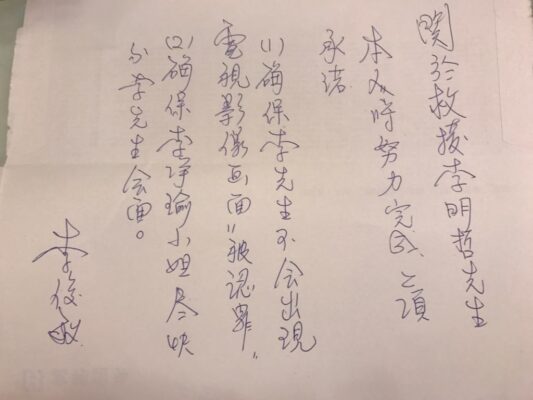 關於救援李明哲先生
本人將努力完成二項
承诺
(1)确保李先生不会出現
電視影像画面"被認罪"
(2)确保李净瑜小姐尽快
与李先生会面。
李俊敏